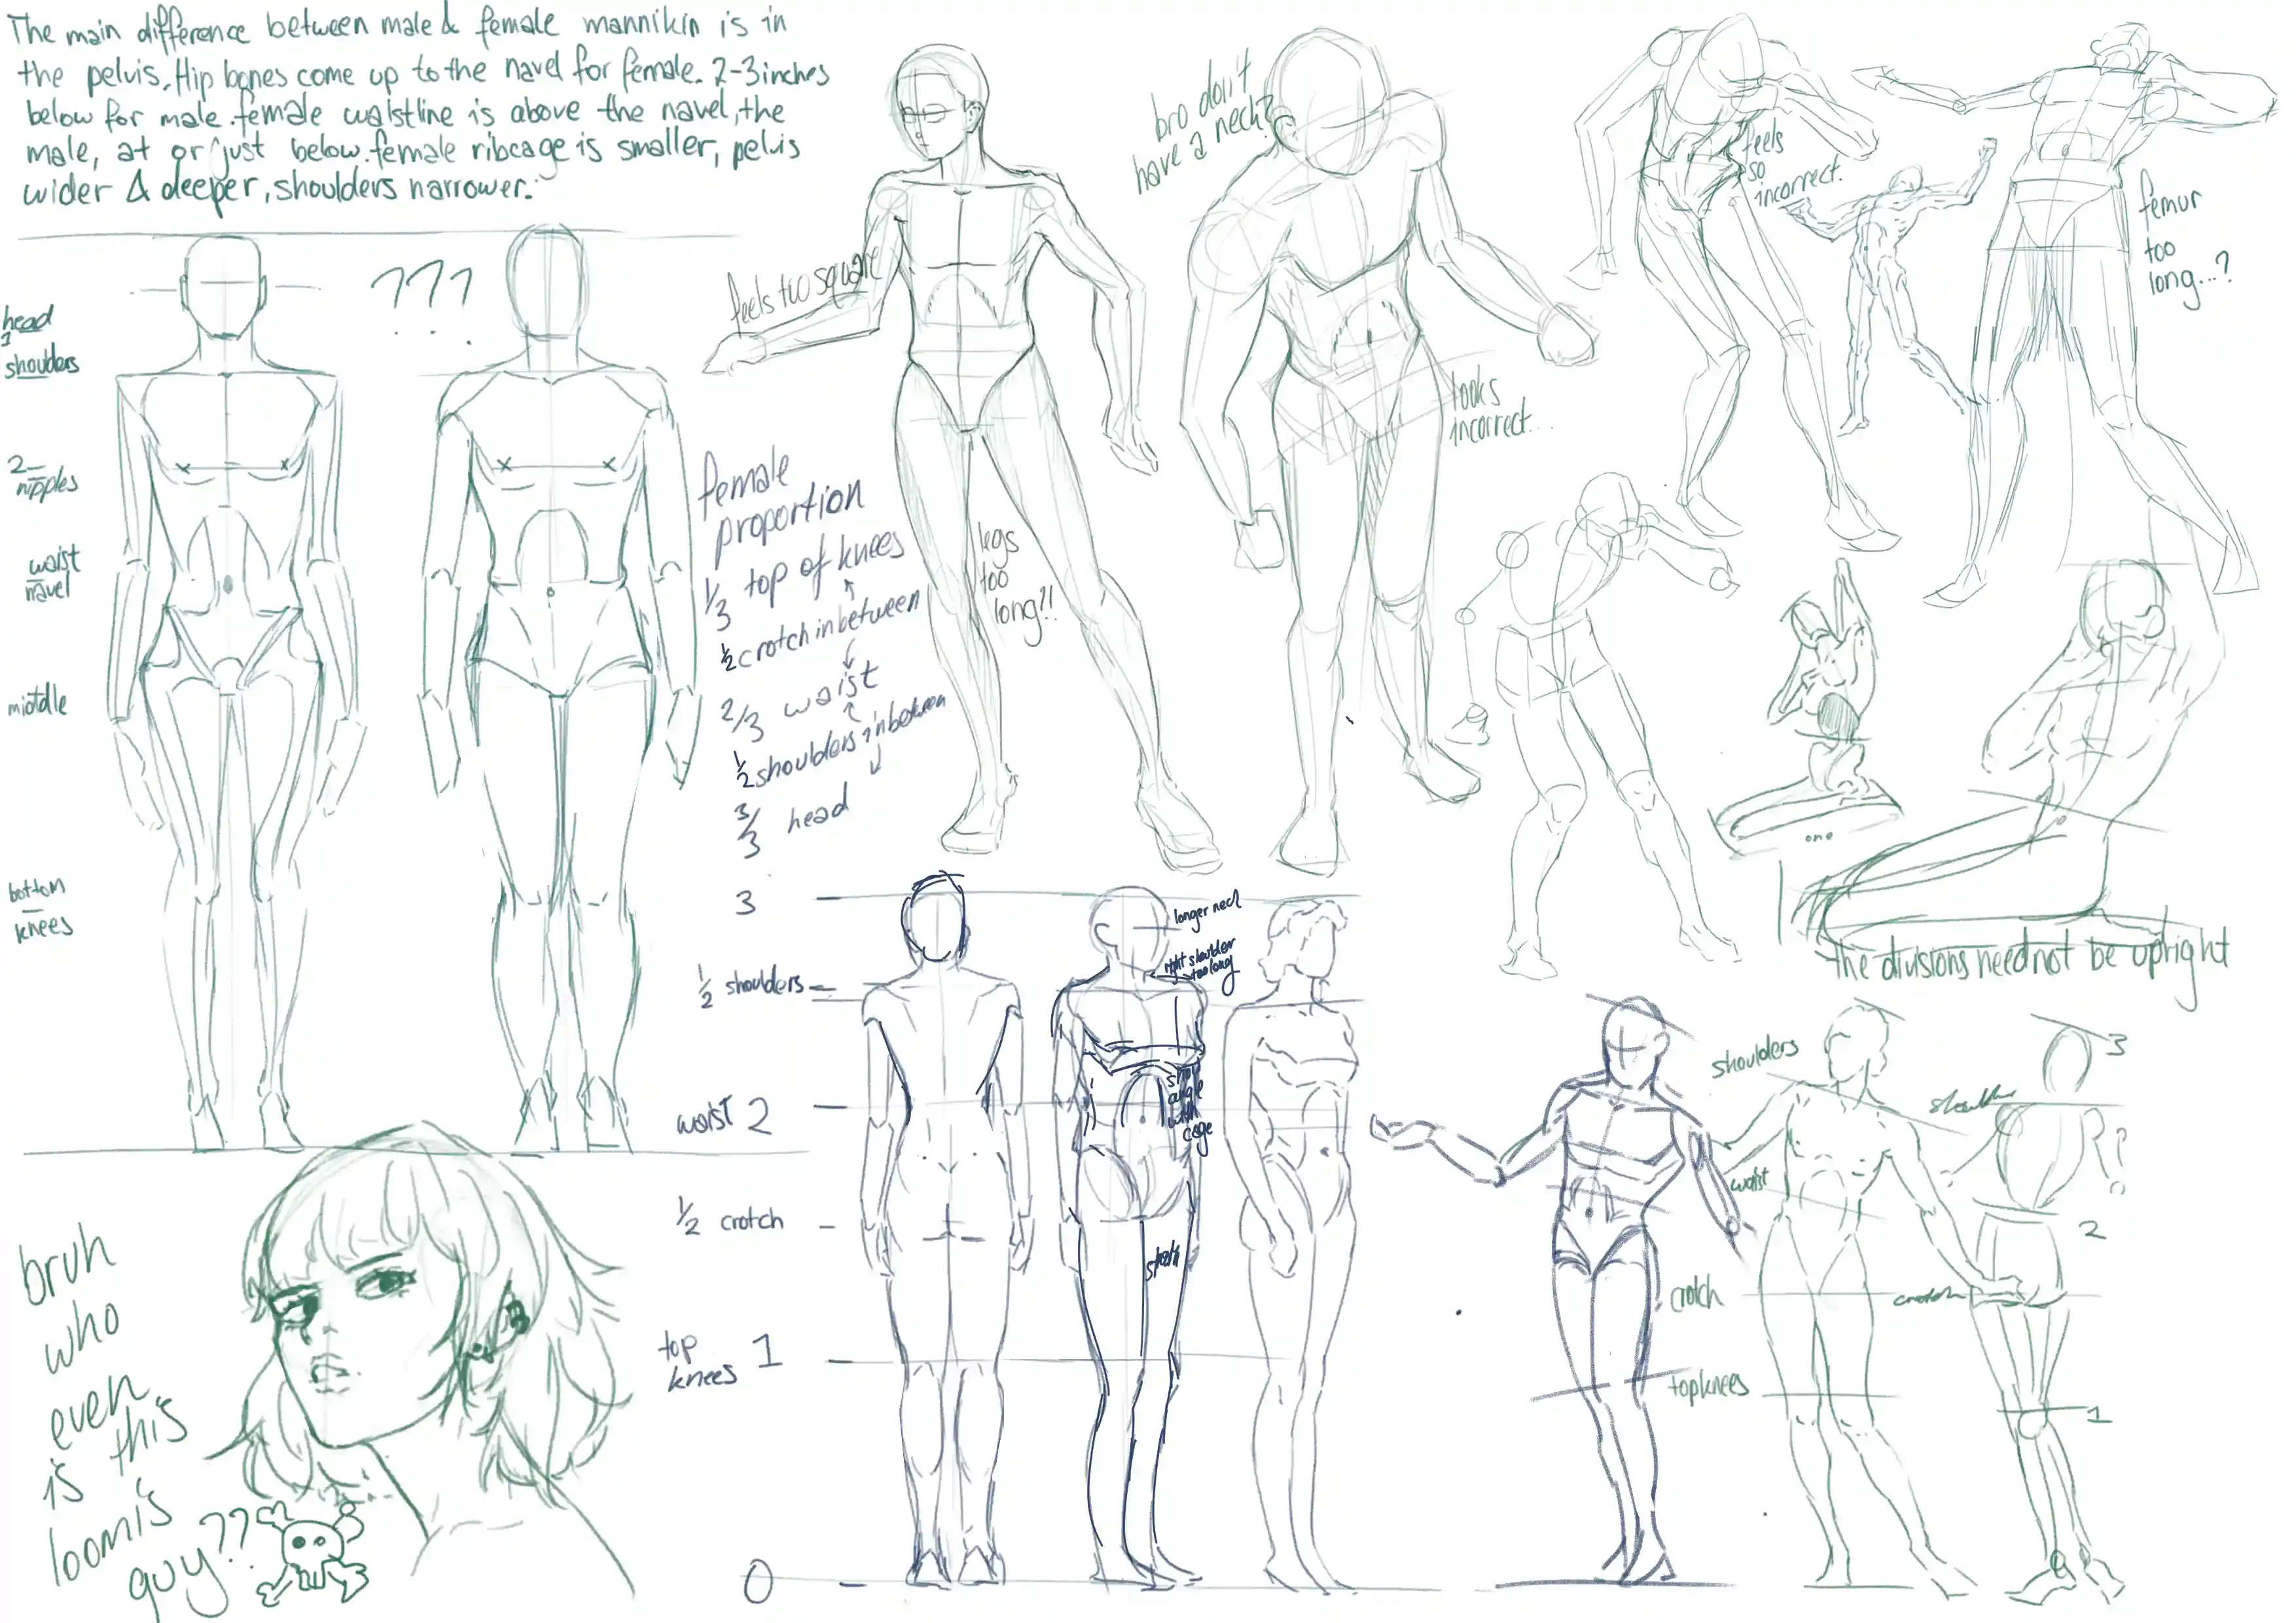 The main difference between male & female mannikin is in
the pelvis. Hip bones come up to the navel for female. 2-3 inches
below for male. female waistline is above the navel, the
male, at or just below. female ribcage is smaller, pelvis
wider & deeper, shoulders narrower.
???
head
1
shoulders
2
nipples
waist
navel
middle
bottom
knees
feels too square
bro don't
have a neck?
looks
incorrect...
feels
so
incorrect.
femur
too
long...?
legs
too
long?!
female
proportion
1/3 top of knees
1/2 crotch in between
2/3 waist
1/2 shoulders in between
3/3 head
3
1/2 shoulders
waist 2
1/2 crotch
top
knees 1
0
longer neck
right shoulder
too long
angle
cage
the divisions need not be upright
shoulders
waist
crotch
top knees
3
shoulder
??
2
crotch
1
bruh
who
even
is this
loomis
guy??